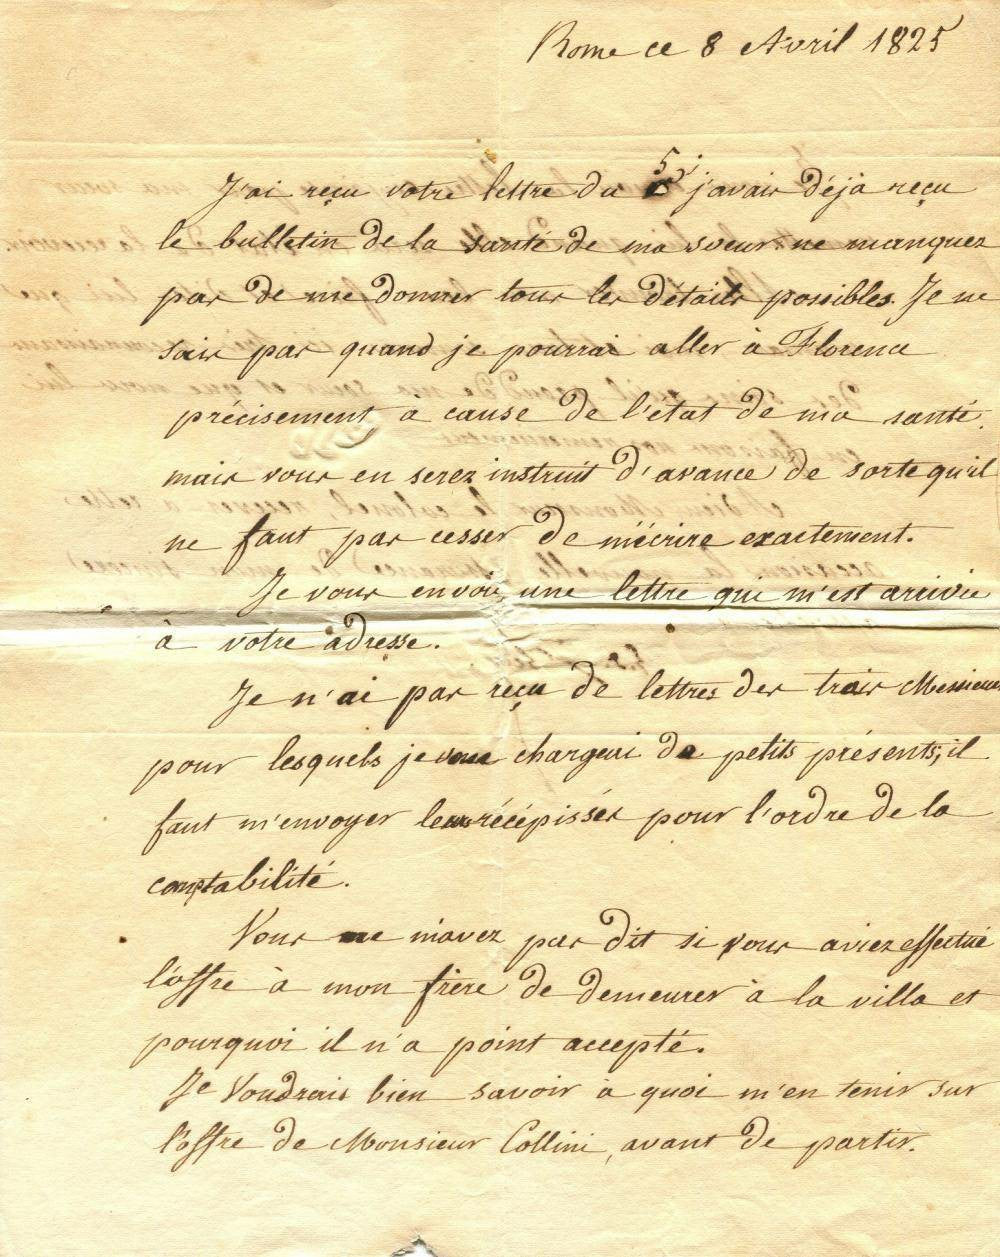 Rome ce 8 Avril 1825
J'ai reçu votre lettre du 5 j'avais déjà reçu
le bulletin de la santé de ma soeur ne manquez
pas de me donner tous les détails possibles. Je ne
sais pas quand je pourrai aller à Florence
précisement a cause de l'état de ma santé.
mais vous en serez instruit d'avance de sorte qu'il
ne faut pas cesser de m'écrire exactement.
Je vous envoie une lettre qui m'est arrivée
à votre adresse.
Je n'ai pas reçu de lettres des trois Messieurs
pour lesquels je vous chargeai de petits présents; il
faut m'envoyer leurs récépissés pour l'ordre de la
comptabilité.
Vous ne m'avez pas dit si vous aviez effectué
l'offre à mon frère de demeurer à la villa et
pourquoi il n'a point accepté.
Je Voudrais bien savoir à quoi m'en tenir sur
l'offre de Monsieur Collini, avant de partir.